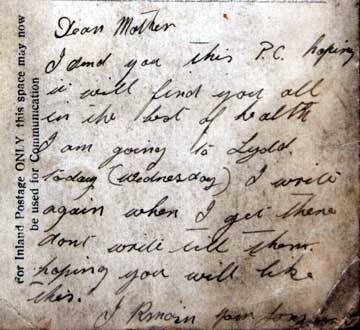 For Inland Postage ONLY this space may now
be used for Communication
Dear Mother
I send you this P.C. hoping
it will find you all
in the best of health
I am going to Lydd
today (Wednesday) I write
again when I get there
dont write till then.
hoping you will like
this.
I Remain your